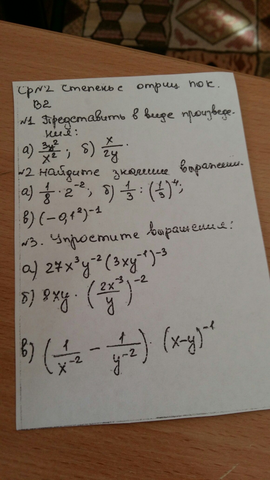 Ср№2 Степень с отриц пок.
В2
№1 Представить в виде произведе-
ния:
а) 3y²/x² ; б) x/2y .
№2 Найдите значение выражени.
а) 1/8 · 2⁻² ; б) 1/3 : (1/3)⁴ ;
в) (-0,1²)⁻¹
№3. Упростите выражения:
а) 27x³y⁻² (3xy⁻¹)⁻³
б) 8xy · (2x⁻³/y)⁻²
в) (1/x⁻² - 1/y⁻²) · (x-y)⁻¹